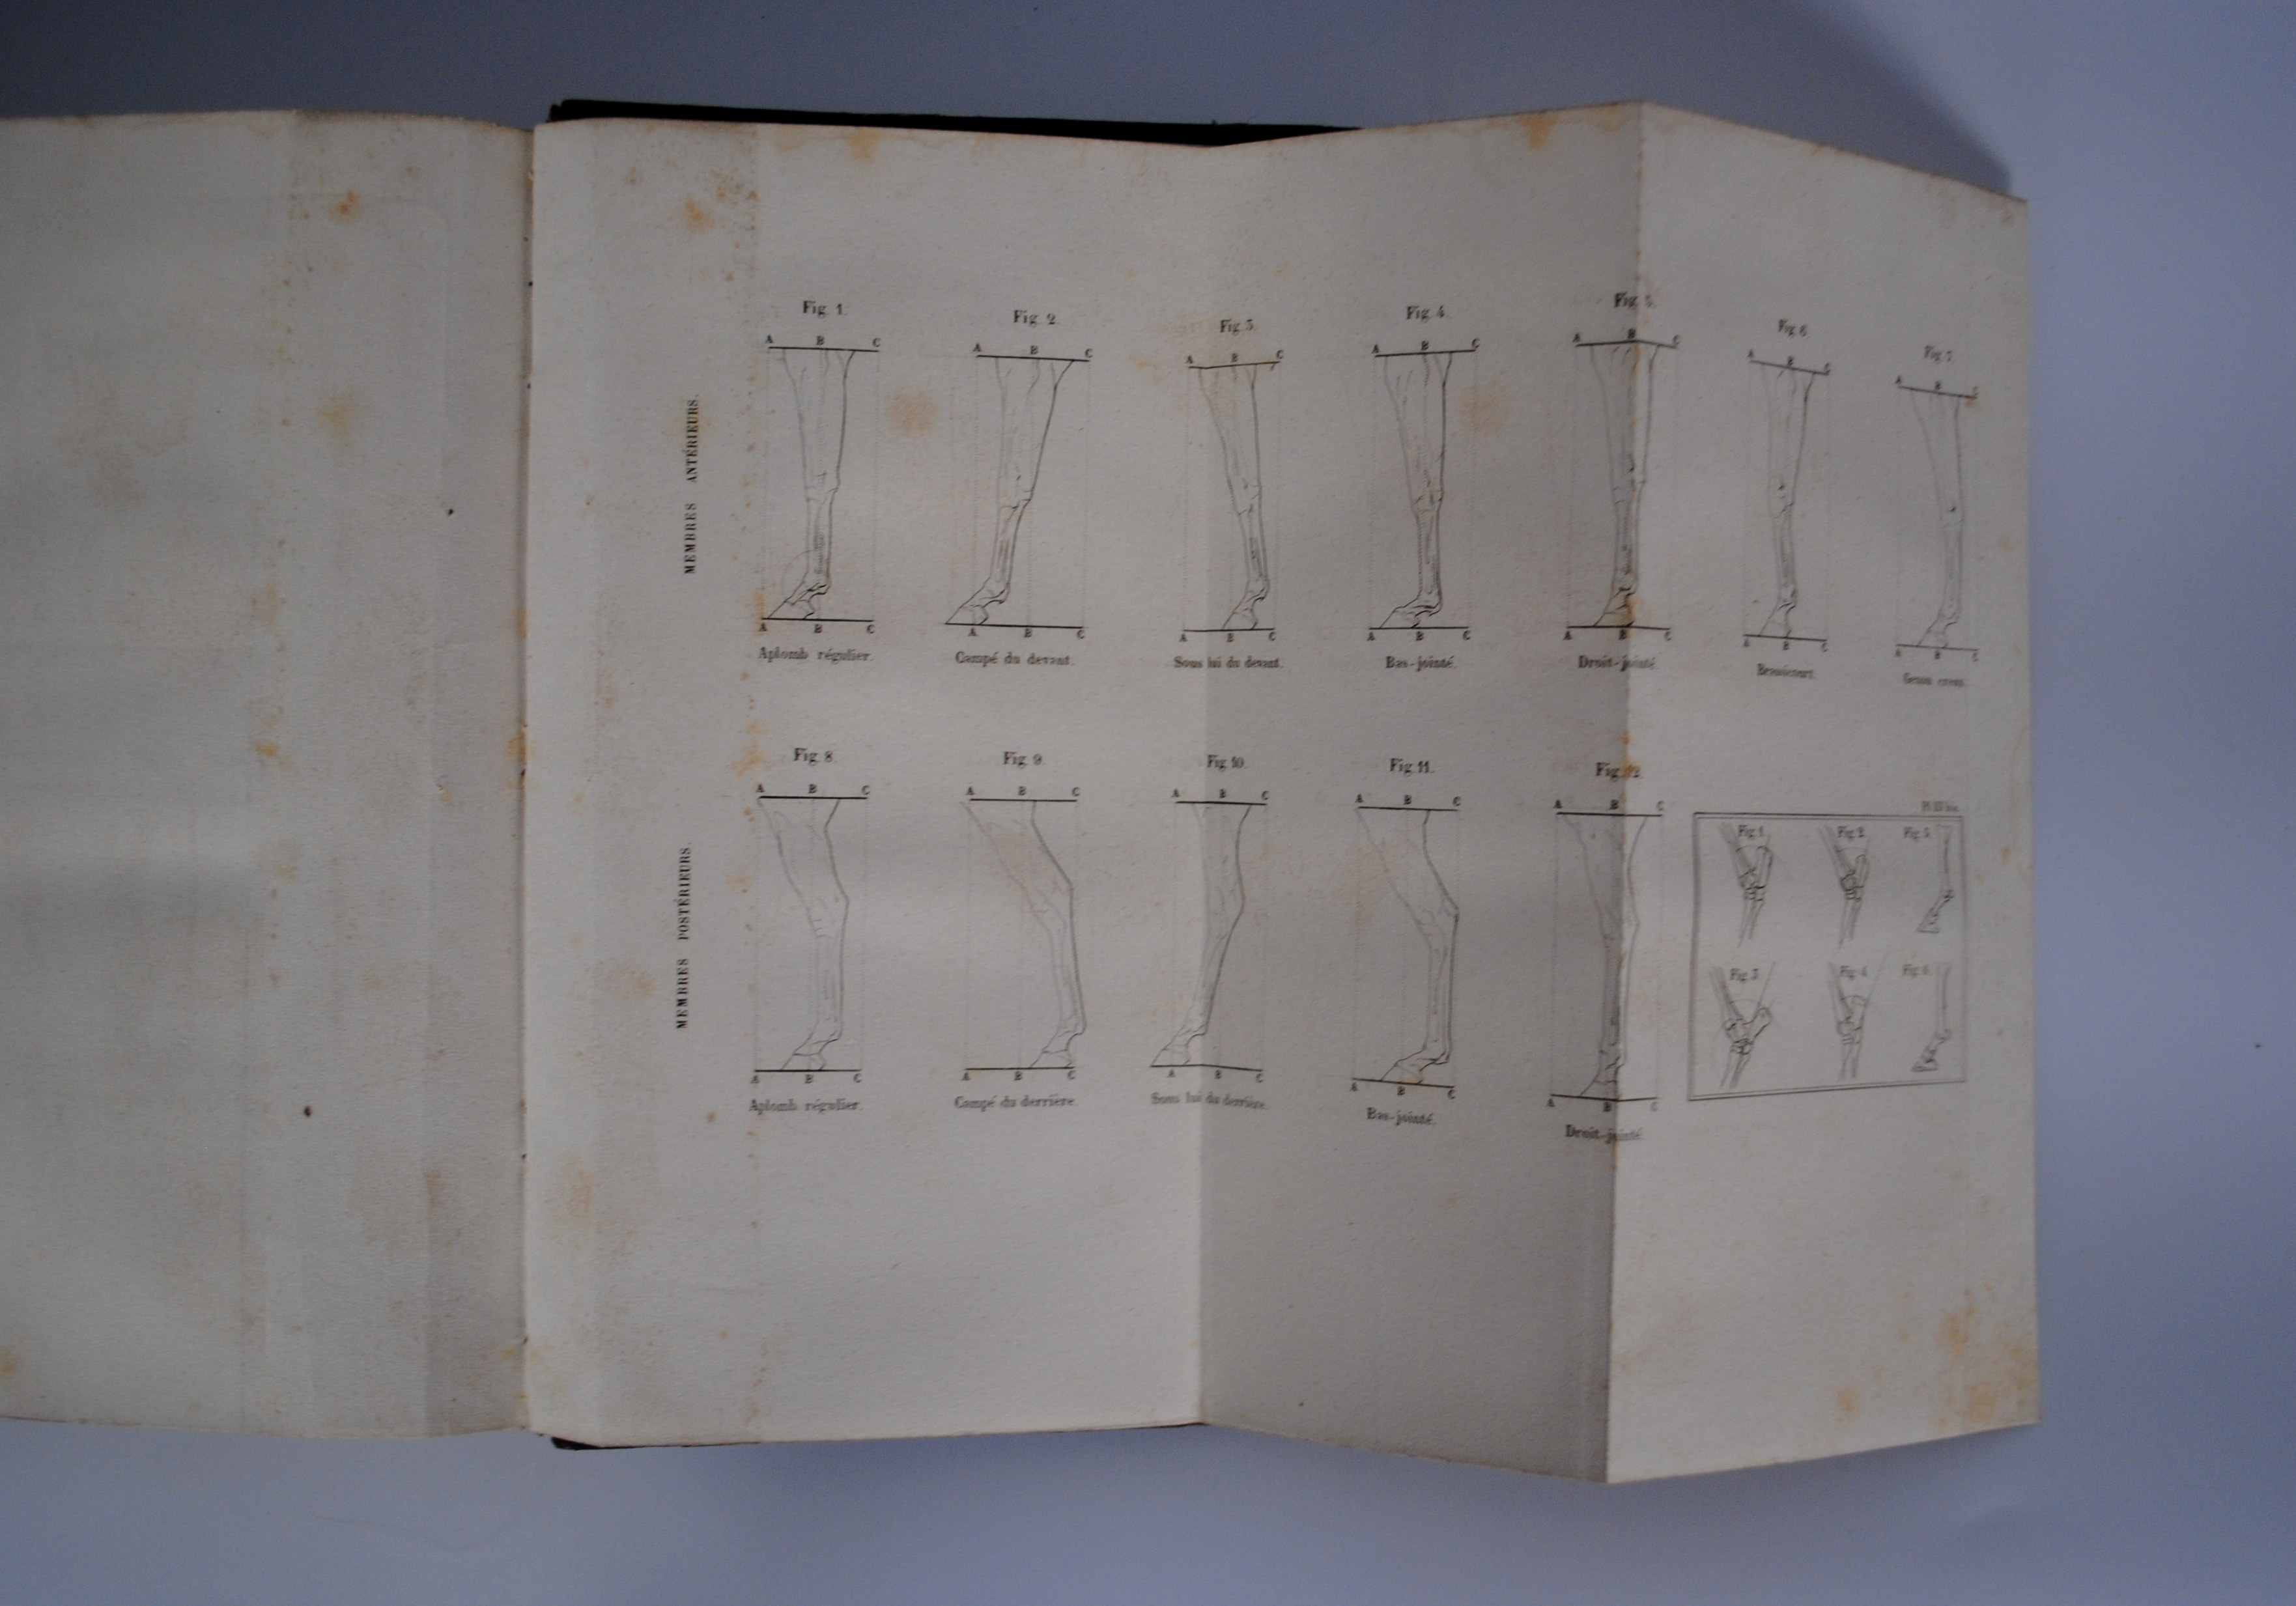 MEMBRES ANTÉRIEURS.
Fig. 1.
A B C
A B C
Aplomb régulier.
Fig. 2.
A B C
A B C
Campé du devant.
Fig. 3.
A B C
A B C
Sous lui du devant.
Fig. 4.
A B C
A B C
Bas-jointé.
Fig. 5.
A B C
A B C
Droit-jointé
Fig. 6
A B C
A B C
Brassicourt.
Fig. 7
A B C
A B C
Genou creux.
MEMBRES POSTÉRIEURS.
Fig. 8.
A B C
A B C
Aplomb régulier.
Fig. 9.
A B C
A B C
Campé du derrière.
Fig. 10.
A B C
A B C
Sous lui du derrière.
Fig. 11.
A B C
A B C
Bas-jointé.
Fig. 12
A B C
A B C
Droit-jointé
Fig. 1
Fig. 2
Fig. 5
Fig. 3
Fig. 4
Fig. 6